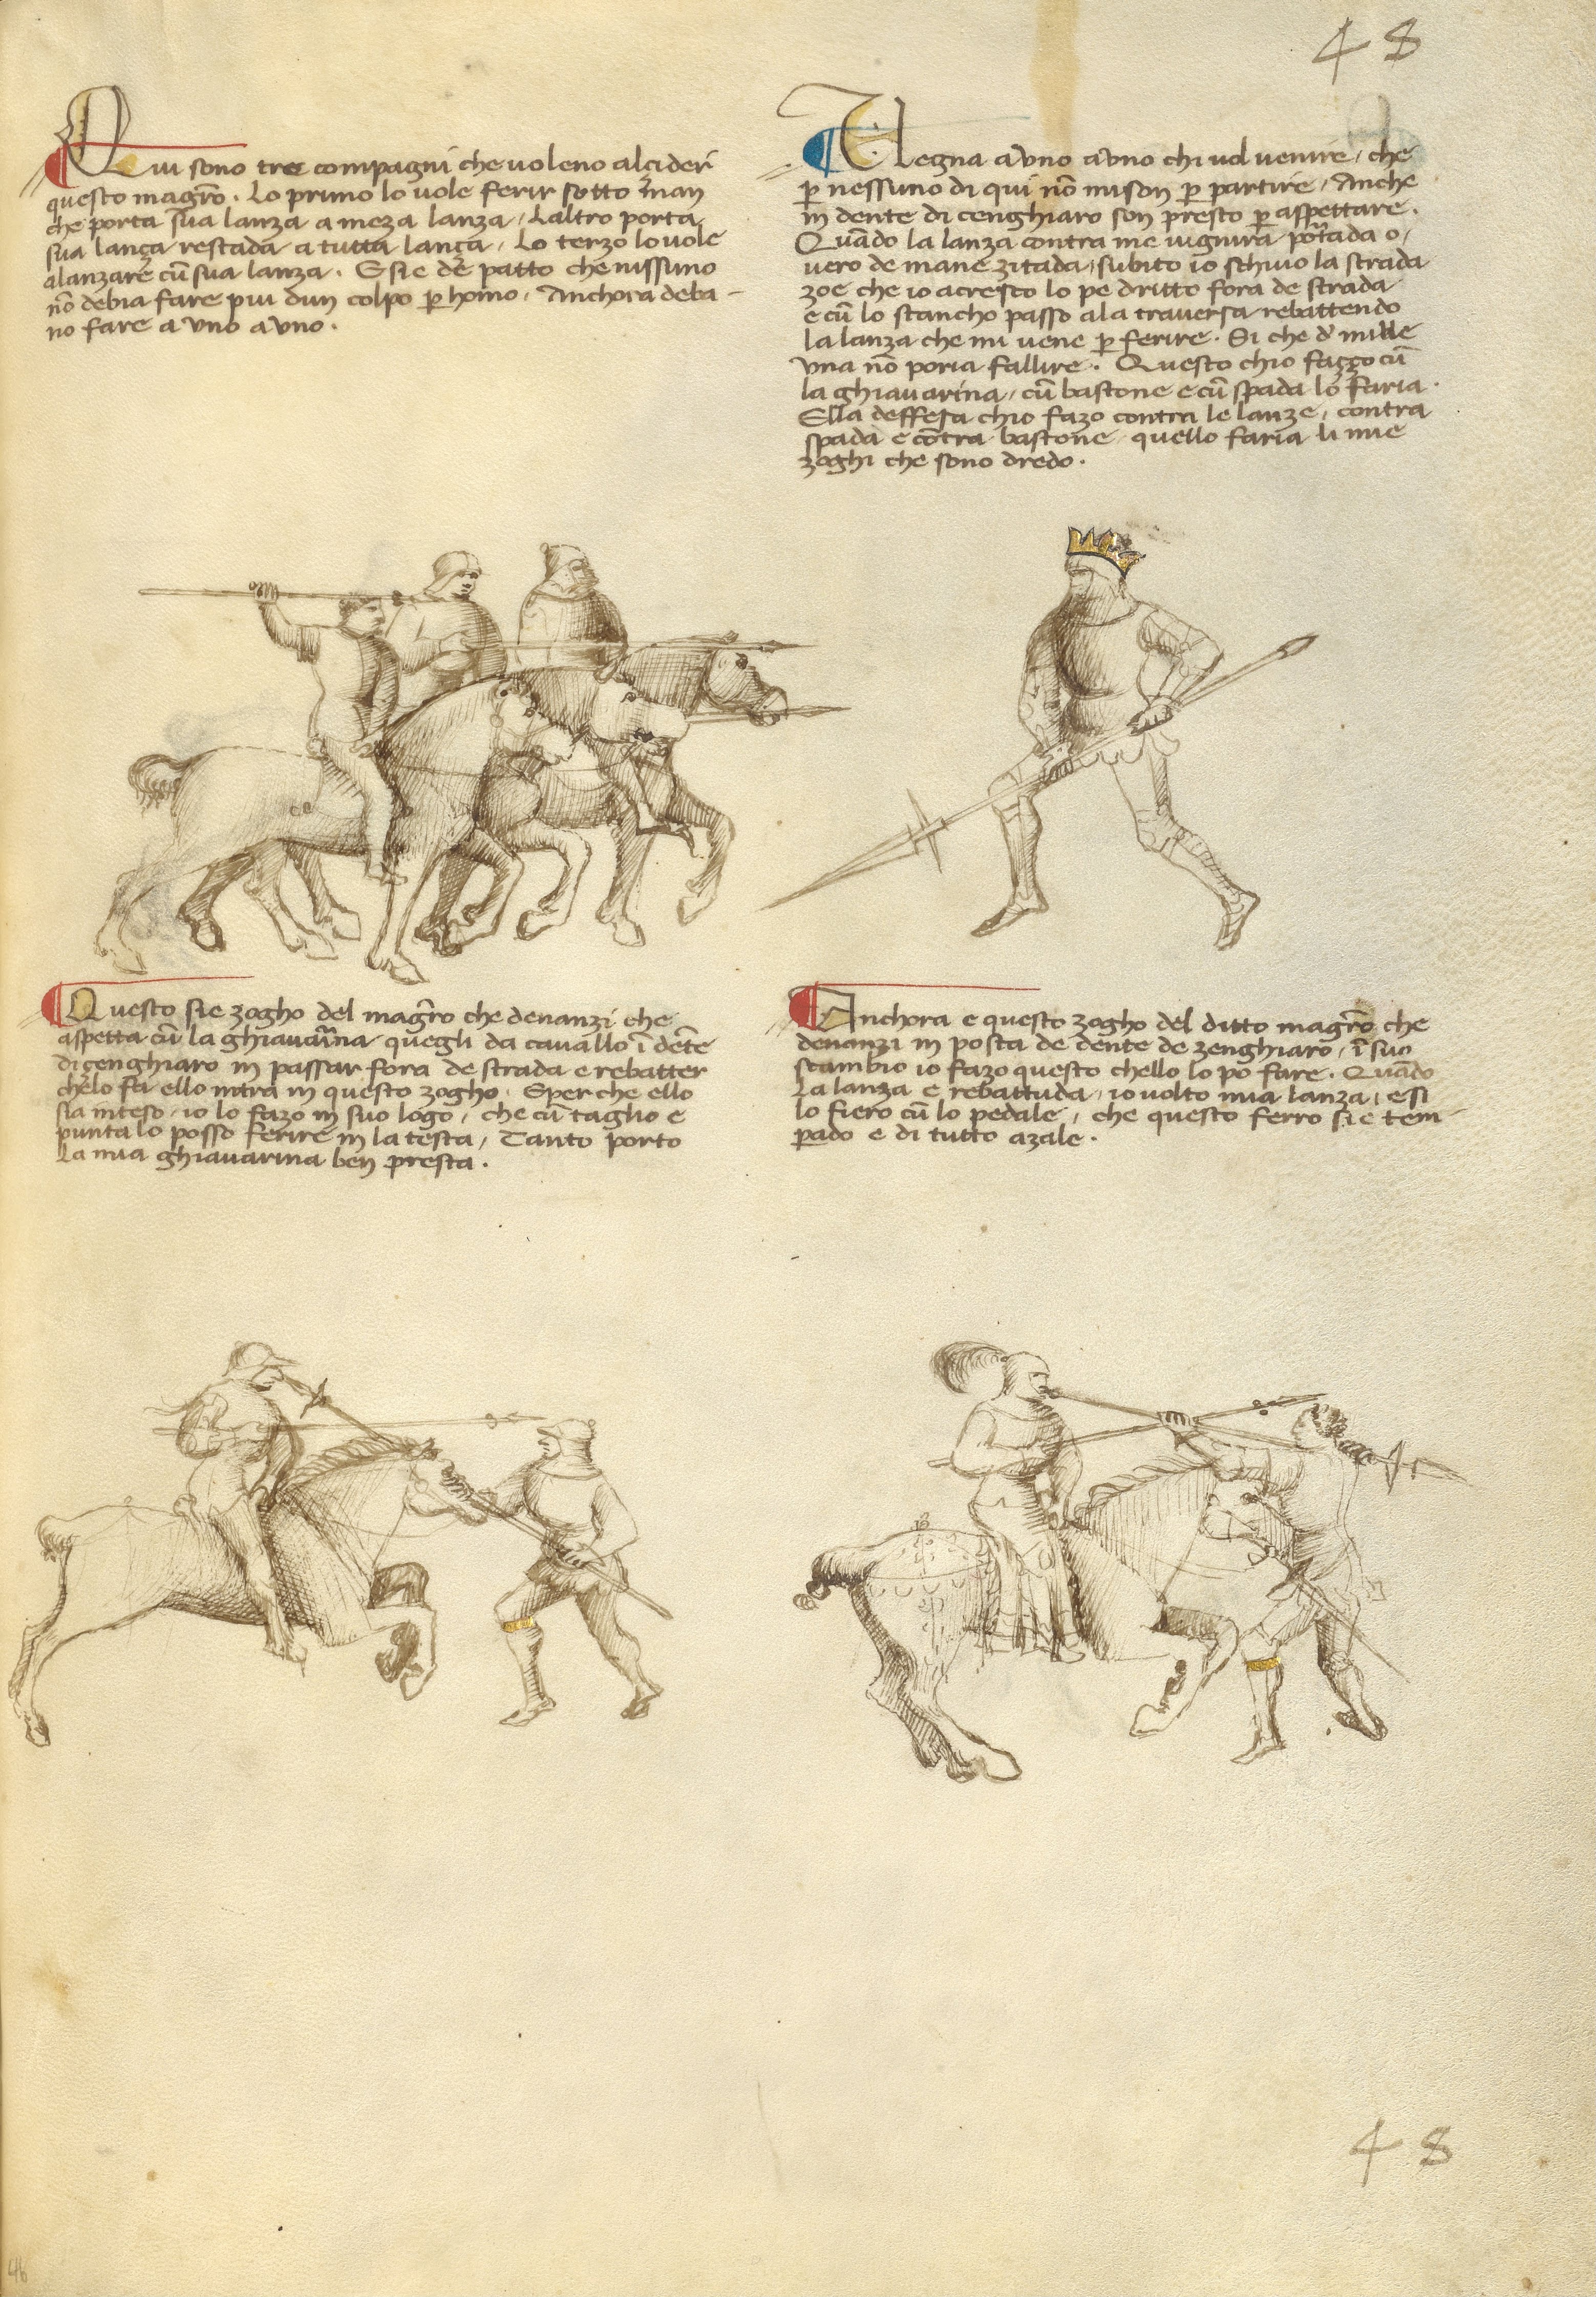 48
Qui sono tre compagni che voleno alçider
questo magro̅. Lo primo lo vole ferir sotto man
che porta sua lanza a meza lanza / Laltro porta
sua lança restada a tutta lança / Lo terzo lo vole
alanzare cu̅ sua lanza. E si e de patto che nissuno
no̅ debia fare piu dun colpo p̱ homo / Anchora deba-
no fare a uno a uno.
Uegna a uno a uno chi vol venire / che
p̱ nessuno di qui no̅ mison p̱ partire / Anche
in dente di cenghiaro son presto p̱ aspettare.
Qua̅do la lanza contra me vignira portada o/
vero de mane zitada / subito io schivo la strada
zoe che io acresco lo pe dritto fora de strada
e cu̅ lo stancho passo ala traversa rebattendo
la lanza che mi vene p̱ ferire. Si che d' mille
una no̅ poria fallire. Questo chio fazzo cu̅
la ghiavarina / cu̅ bastone e cu̅ spada lo faria.
Ella deffesa chio fazo contra le lanze / contra
spada e co̅tra bastone quello faria li mie
zoghi che sono dredo.
Questo sie zogho del magro̅ che denanzi che
aspetta cu̅ la ghiavarina quegli da cavallo i̅ de̅te
di cenghiaro in passar fora de strada e rebatter
chello fa ello intra in questo zogho. E per che ello
sia inteso / io lo fazo in suo logo / che cu̅ taglio e
punta lo posso ferire in la testa / Tanto porto
la mia ghiavarina ben presta.
Anchora e questo zogho del ditto magro̅ che
denanzi in posta de dente de zenghiaro / i̅ suo
scambio io fazo questo chello lo po fare. Qua̅do
La lanza e rebattuda / io volto mia lanza / e si
lo fiero cu̅ lo pedale / che questo ferro sie tem-
perado e di tutto azale.
48
46